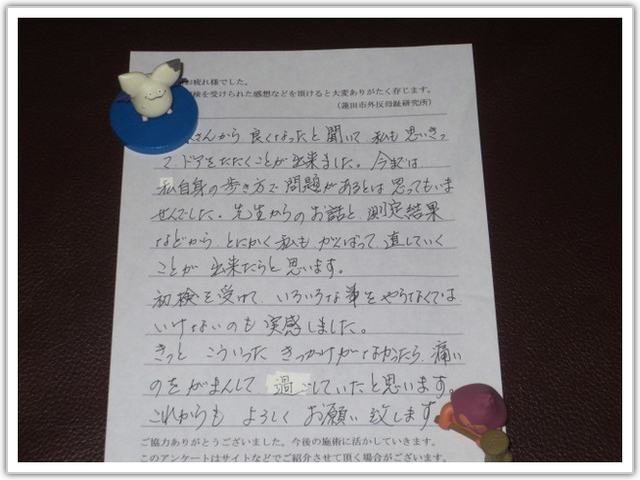 お疲れ様でした。
検を受けられた感想などを頂けると大変ありがたく存じます。
（蓮田市外反母趾研究所）
さんから 良くなったと聞いて 私も思いきっ
て、ドアをたたくことが出来ました。今までは
私自身の歩き方で問題があるとは思ってもいま
せんでした。先生からのお話と、測定結果
などから、とにかく私も、がんばって、直していく
ことが出来たらと思います。
初検を受けて、いろいろな事をやらなくては
いけないのも実感しました。
きっと こういった きっかけがなかったら、痛い
のをがまんして 過ごしていたと思います。
これからも よろしく お願い致します
ご協力ありがとうございました。今後の施術に活かしていきます。
このアンケートはサイトなどでご紹介させて頂く場合がございます。